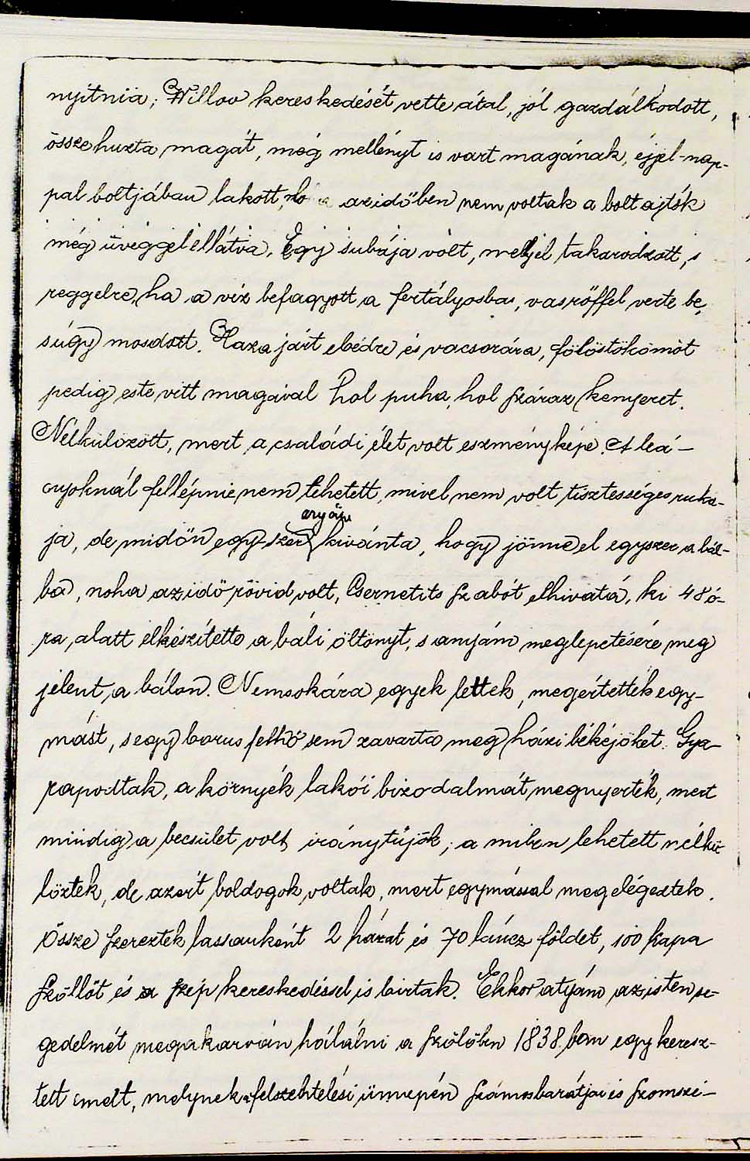 nyitnia; Willov kereskedését vette átal, jól gazdálkodott,
összehuzta magát, még mellényt is vart magának, éjjel-nap-
pal boltjában lakott, azidőben nem voltak a boltajtók
még üveggel ellátva. Egy subája volt, melyel takarodzott, s
reggelre, ha a víz befagyott a fertályosba, vasrőffel verte be,
s úgy mosdott. Haza járt ebédre és vacsorára, fölöstökömöt
pedig este vitt magával hol puha, hol száraz kenyeret.
Nélkülözött, mert a családi élet volt eszményképe. A leá-
nyoknál fellépnie nem lehetett, mivel nem volt tisztességes ruhá-
ja, de midőn egyszer anyám kivánta, hogy jönne el egyszer a bál-
ba, noha azidő rövid volt, Csernetits szabót elhivatá, ki 48 ó-
ra, alatt elkészítette a báli öltönyt, s anyám meglepetésére meg
jelent, a bálon. Nemsokára egyek lettek, megértették egy-
mást, s egy borus felhő sem zavarta meg házi békéjöket. Gya-
rapodtak, a környék lakói bizodalmát megnyerték, mert
mindig a becsület volt iránytűjök; a miben lehetett nélkü-
löztek, de azért boldogok voltak, mert egymással megelégedtek.
Össze szereztek lassanként 2 házat és 70 láncz földet, 100 kapa
szőllőt és a szép kereskedéssel is birtak. Ekkor atyám azisten se-
gedelmét megakarván hálálni a szőlőben 1838ban egy keresz-
tett emelt, melynek felszentelési ünnepén számos barátjai és szomszé-